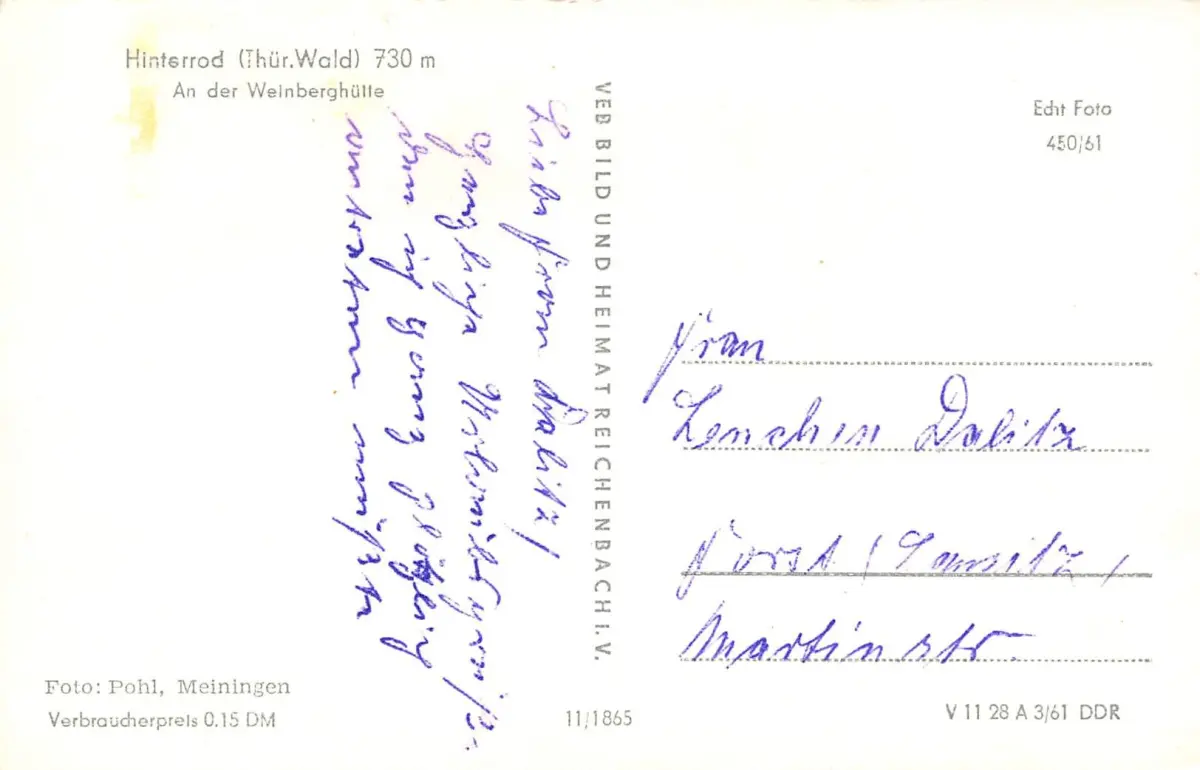 Hinterrod (Thür.Wald) 730 m
An der Weinberghütte
Liebe Frau Dalitz!
Herzliche Urlaubsgrüße
den ich ganz plötzlich
antreten mußte
VEB BILD UND HEIMAT REICHENBACH I.V.
Echt Foto
450/61
Frau
Lenchen Dalitz
Forst / Lausitz /
Martinstr.
Foto: Pohl, Meiningen
Verbraucherpreis 0.15 DM
11/1865
V 11 28 A 3/61 DDR